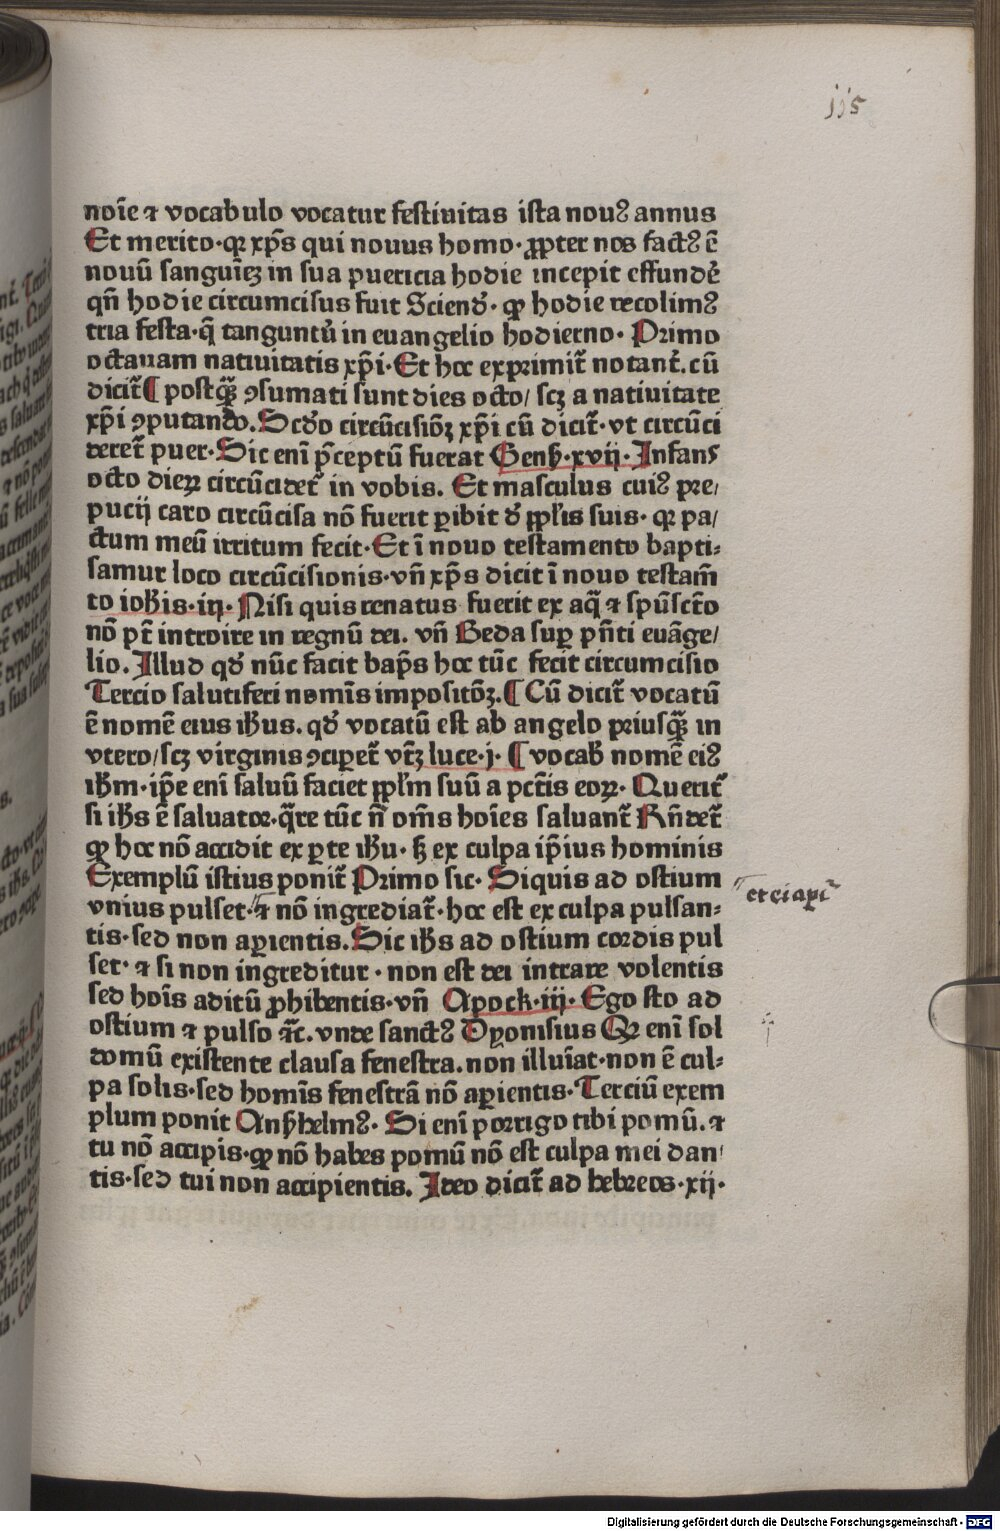 jj5
noīe ⁊ vocabulo vocatur festiuitas ista nouꝰ annus
Et merito· qꝛ xp̄s qui nouus homo· ꝓpter nos factꝰ ē
nouū sanguīeꝫ in sua puericia hodie incepit effundē
qn̄ hodie circumcisus fuit Sciend̄· ꝙ hodie recolimꝰ
tria festa· q̄ tangunt᷑ in euangelio hodierno· Primo
octauam natiuitatis xp̄i· Et hoc exprimit᷑ notant᷑. cū
dicit᷑ ¶ postq̄ꝫ ꝯsumati sunt dies octo/ scꝫ a natiuitate
xp̄i ꝯputando. Scd̄o circūcisiōꝫ xp̄i cū dicit᷑· vt circūci
deret᷑ puer· Sic enī p̄ceptū fuerat Gen̄· xvij· Infans
octo dieꝝ circūcidet᷑ in vobis. Et masculus cuiꝰ pre/
pucij caro circūcisa nō fuerit ꝑibit d̄ ppl̄is suis· qꝛ pa/
ctum meū irritum fecit· Et ī nouo testamento bapti⸗
samur loco circūcisionis· vn̄ xp̄s dicit ī nouo testam̄
to ioh̄is· iij· Nisi quis renatus fuerit ex aq̄ ⁊ spūscto
nō pt̄ introire in regnū dei. vn̄ Beda suꝑ pn̄ti euāge/
lio. Illud qd̄ nūc facit bap̄s hoc tūc fecit circumcisio
Tercio salutiferi nomīs impositōꝫ. ¶ Cū dicit᷑ vocatū
ē nomē eius ih̄us. qd̄ vocatū est ab angelo priusq̄ꝫ in
vtero/ scꝫ virginis ꝯciꝑet᷑ vt᷑ꝫ luce· j· ¶ vocab̄ nomē eiꝰ
ih̄m· ip̄e enī saluū faciet ppl̄m suū a pct̄is eoꝝ· Querit᷑
si ih̄s ē saluator· q̄re tūc n̄ om̄s hoīes saluant᷑ Rn̄det᷑
ꝙ hoc nō accidit ex ꝑte ih̄u· sꝫ ex culpa ip̄ius hominis
Exemplū istius ponit᷑ Primo sic· Siquis ad ostium
vnius pulset· ⁊ nō ingrediat᷑· hoc est ex culpa pulsan⸗
tis· sed non aꝑientis. Sic ih̄s ad ostium cordis pul
set· ⁊ si non ingreditur· non est dei intrare volentis
sed hoīs aditū ꝓhibentis· vn̄ Apock· iij· Ego sto ad
ostium ⁊ pulso ⁊c̄. vnde sanctꝰ Dyonisius Qꝛ enī sol
domū existente clausa fenestra. non illuīat· non ē cul⸗
pa solis· sed homīs fenestrā nō aꝑientis· Terciū exem
plum ponit Anshelmꝰ· Si enī porrigo tibi pomū. ⁊
tu nō accipis· ꝙ nō habes pomū nō est culpa mei dan/
tis· sed tui non accipientis. Ideo dicit᷑ ad hebreos· xij·
Digitalisierung gefördert durch die Deutsche Forschungsgemeinschaft - DFG